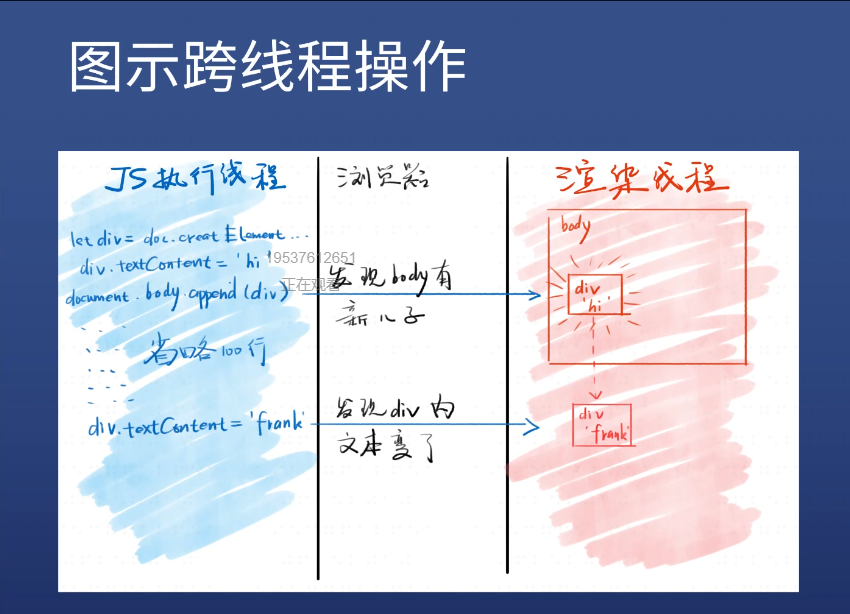 图示跨线程操作
JS执行线程
let div = doc.creatElement...
div.textContent = 'hi'
document.body.append(div)
省略100行
div.textContent = 'frank'
19537612651
正在观看
浏览器
发现body有
新儿子
发现div内
文本变了
渲染线程
body
div
'hi'
div
'frank'